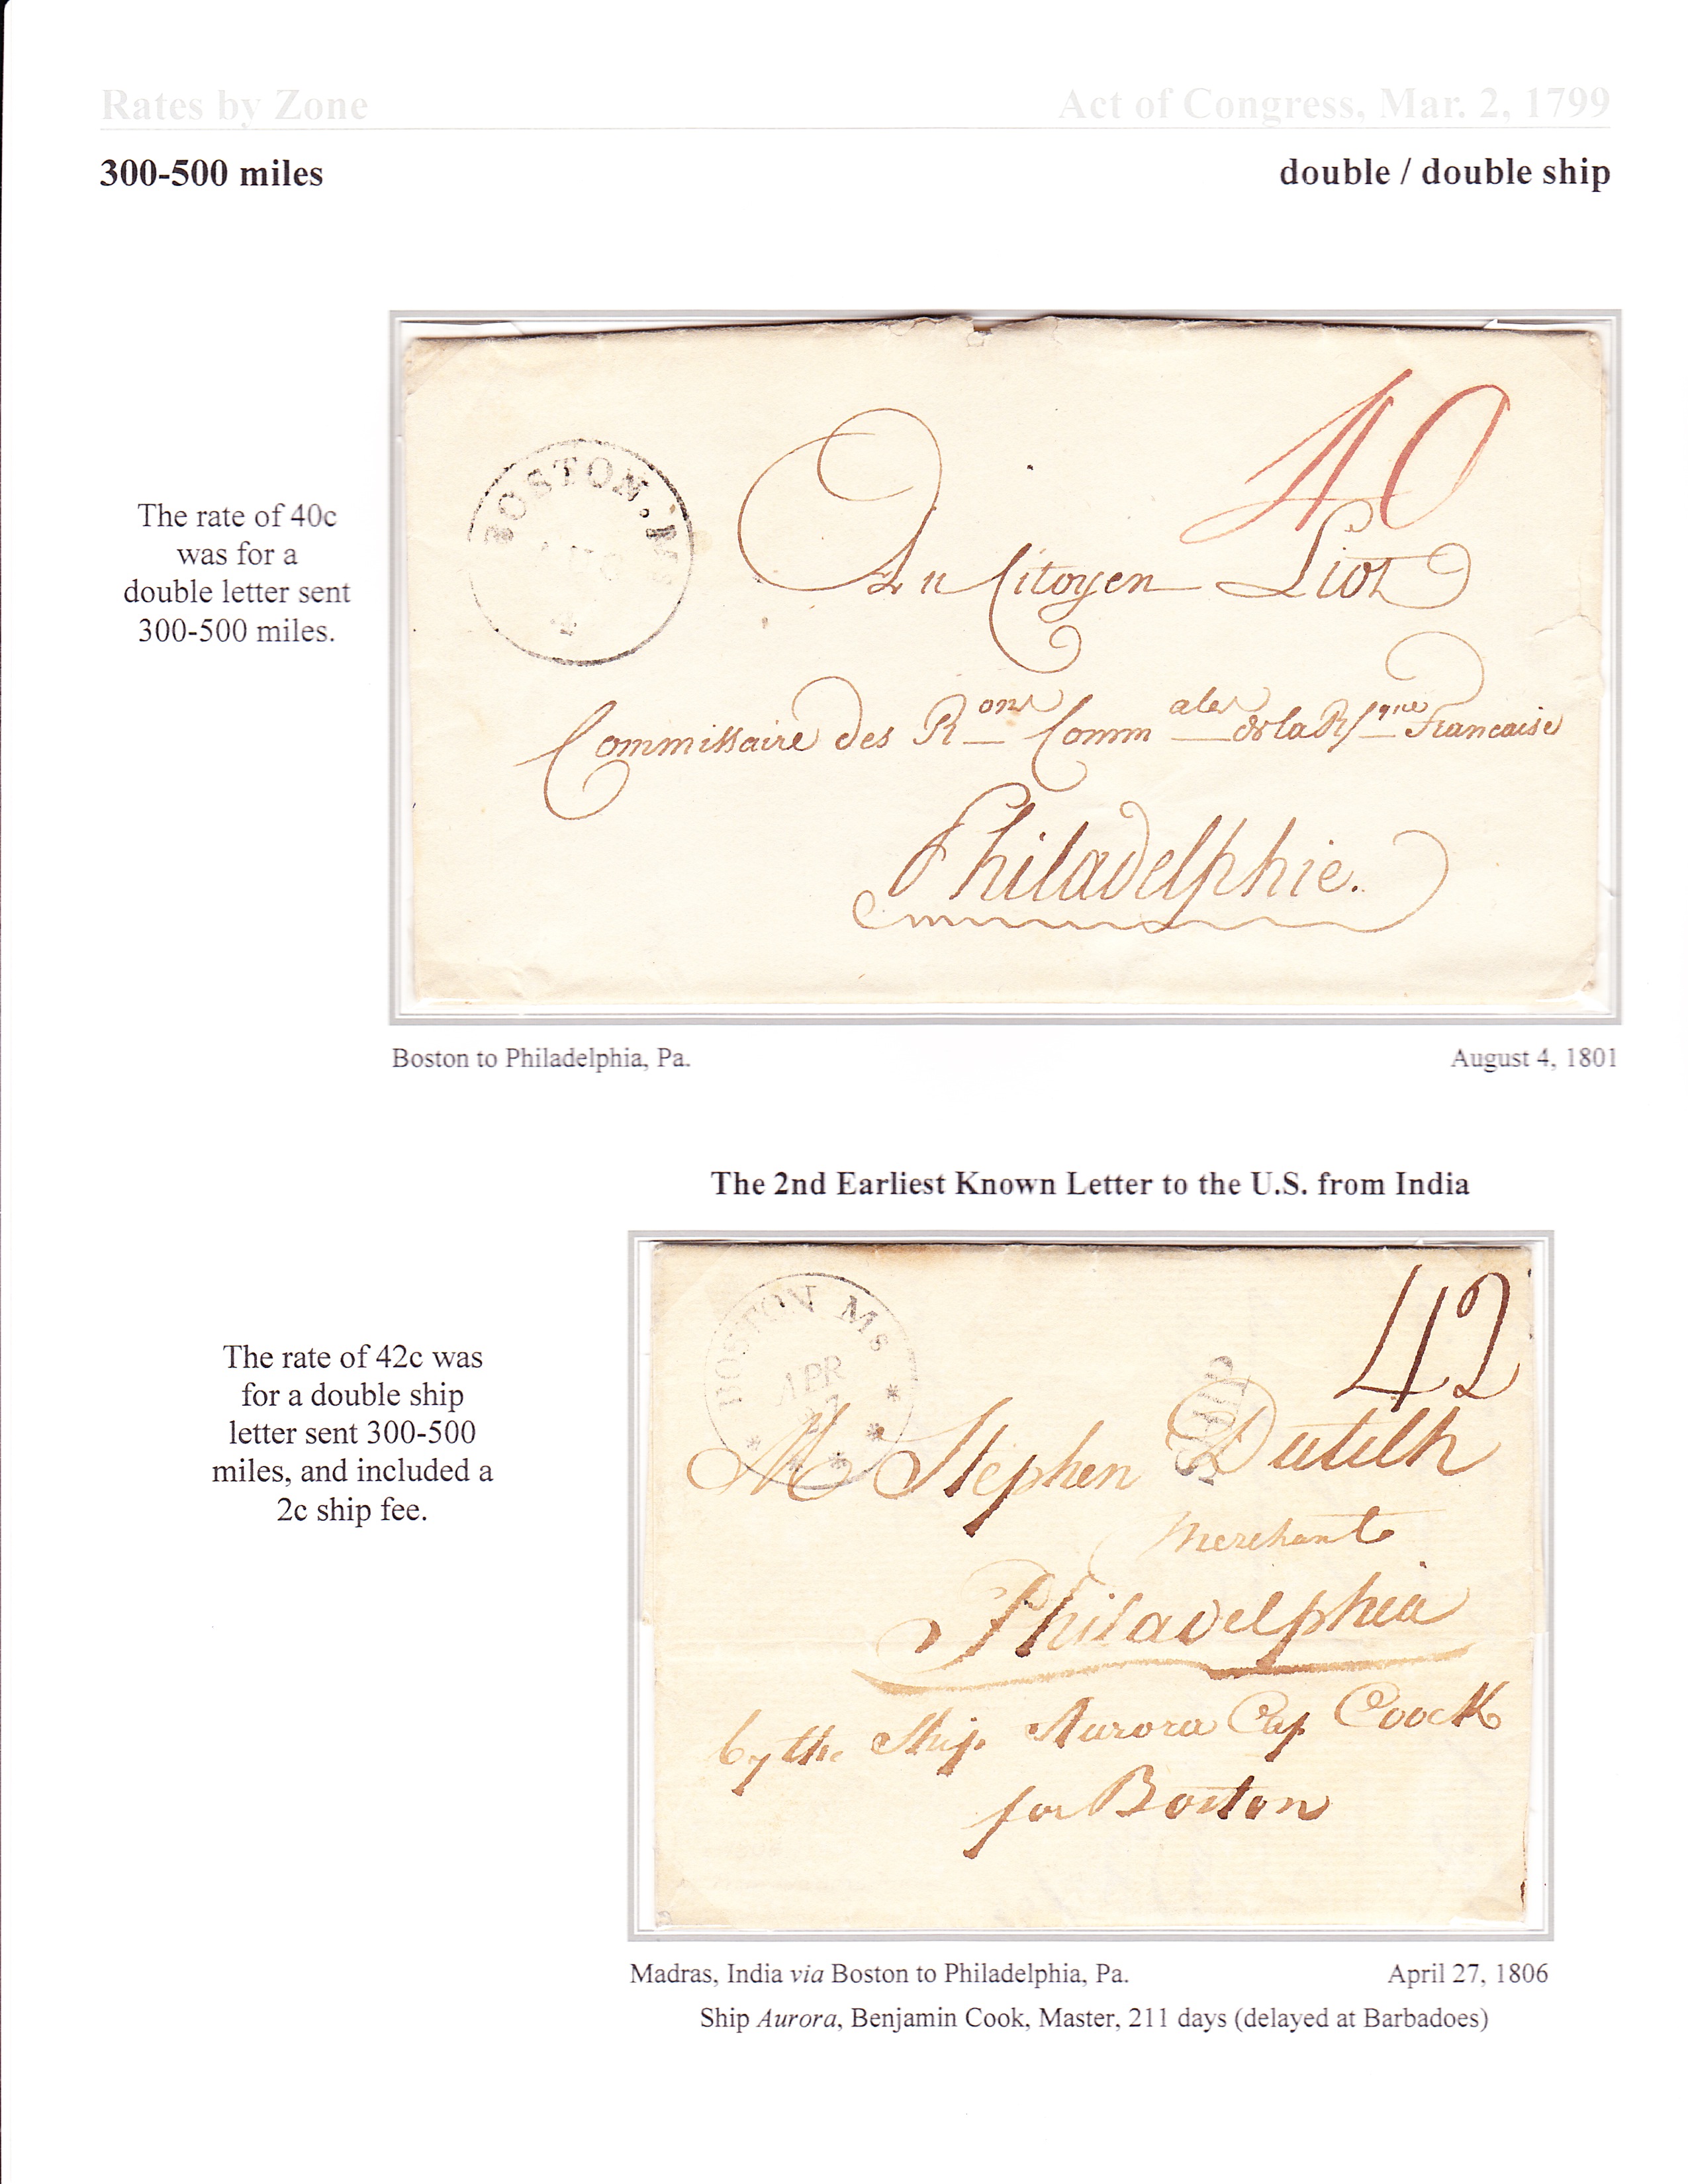 Rates by Zone
Act of Congress, Mar. 2, 1799
300-500 miles
double / double ship
The rate of 40c
was for a
double letter sent
300-500 miles.
BOSTON. Ms
40
Au Citoyen Liot
Commissaire des Rons Commales de la française
Philadelphie.
Boston to Philadelphia, Pa.
August 4, 1801
The 2nd Earliest Known Letter to the U.S. from India
The rate of 42c was
for a double ship
letter sent 300-500
miles, and included a
2c ship fee.
BOSTON Ms
APR
27
SHIP
42
M Stephen Dutilh
Merchant
Philadelphia
by the Ship Aurora Cap Coock
for Boston
Madras, India via Boston to Philadelphia, Pa.
April 27, 1806
Ship Aurora, Benjamin Cook, Master, 211 days (delayed at Barbadoes)